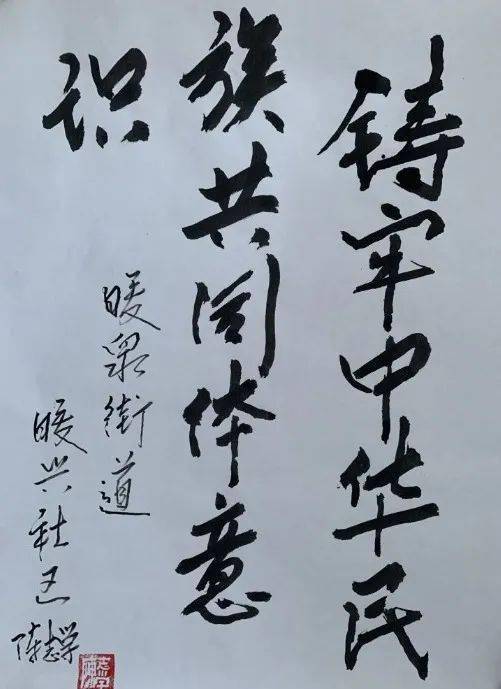 铸牢中华民
族共同体意
识
暖泉街道
暖兴社区
陈志学